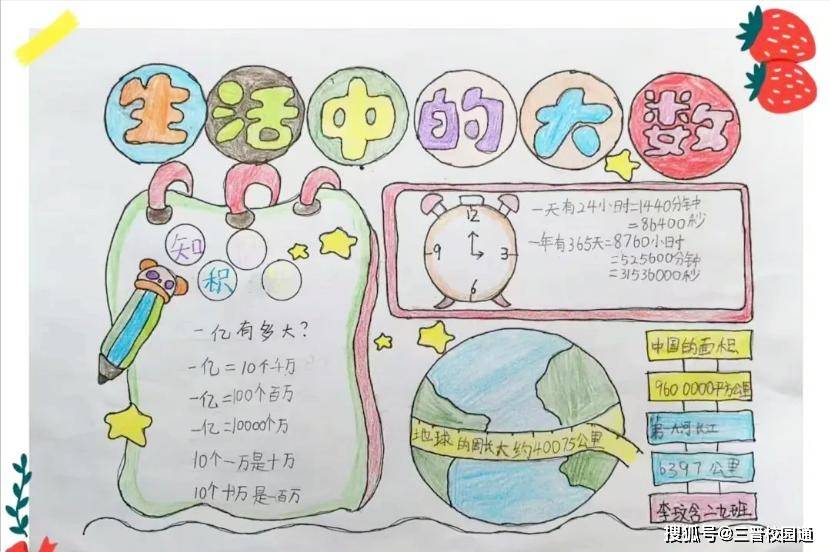 生活中的大数
知
积
一亿有多大?
一亿=10个千万
一亿=100个百万
一亿=10000个万
10个一万是十万
10个十万是一百万
12
9
3
6
一天有24小时=1440分钟
=86400秒
一年有365天=8760小时
=525600分钟
=31536000秒
地球的周长大约40075公里
中国的面积
9600000平方公里
第一大河长江
6397公里
二九班
搜狐号@三晋校园通